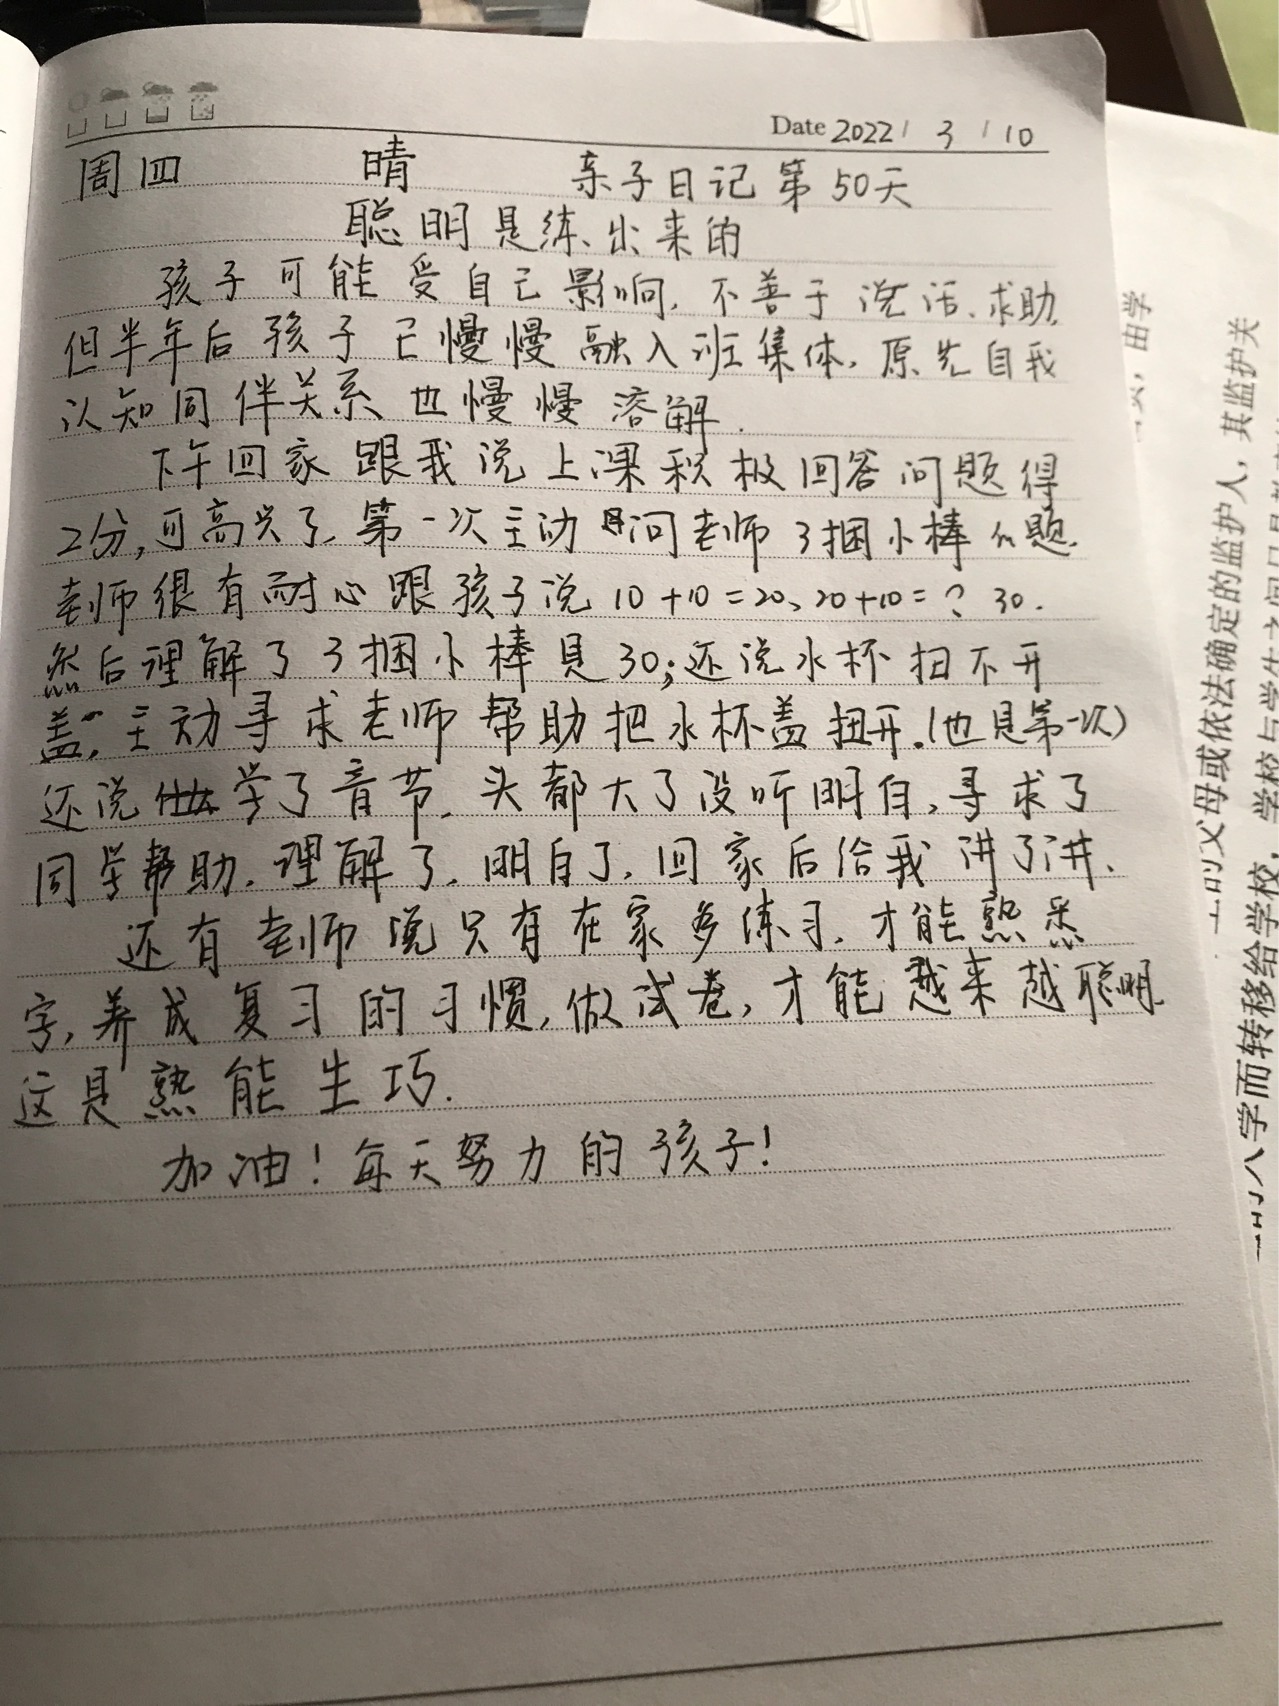 Date 2022 / 3 / 10
周四 晴 亲子日记第50天
聪明是练出来的
孩子可能受自己影响,不善于说话、求助,
但半年后孩子已慢慢融入班集体,原先自我
认知同伴关系也慢慢溶解.
下午回家跟我说上课积极回答问题得
2分,可高兴了,第一次主动问老师3捆小棒的题.
老师很有耐心跟孩子说10+10=20、20+10=?30.
然后理解了3捆小棒是30;还说水杯扭不开
盖,主动寻求老师帮助把水杯盖扭开.(也是第一次)
还说学了音节,头都大了没听明白,寻求了
同学帮助.理解了,明白了,回家后给我讲了讲.
还有老师说只有在家多练习,才能熟悉
字,养成复习的习惯,做试卷,才能越来越聪明.
这是熟能生巧.
加油!每天努力的孩子!
,由学
上的父母或依法确定的监护人,其监护关
入学而转移给学校,